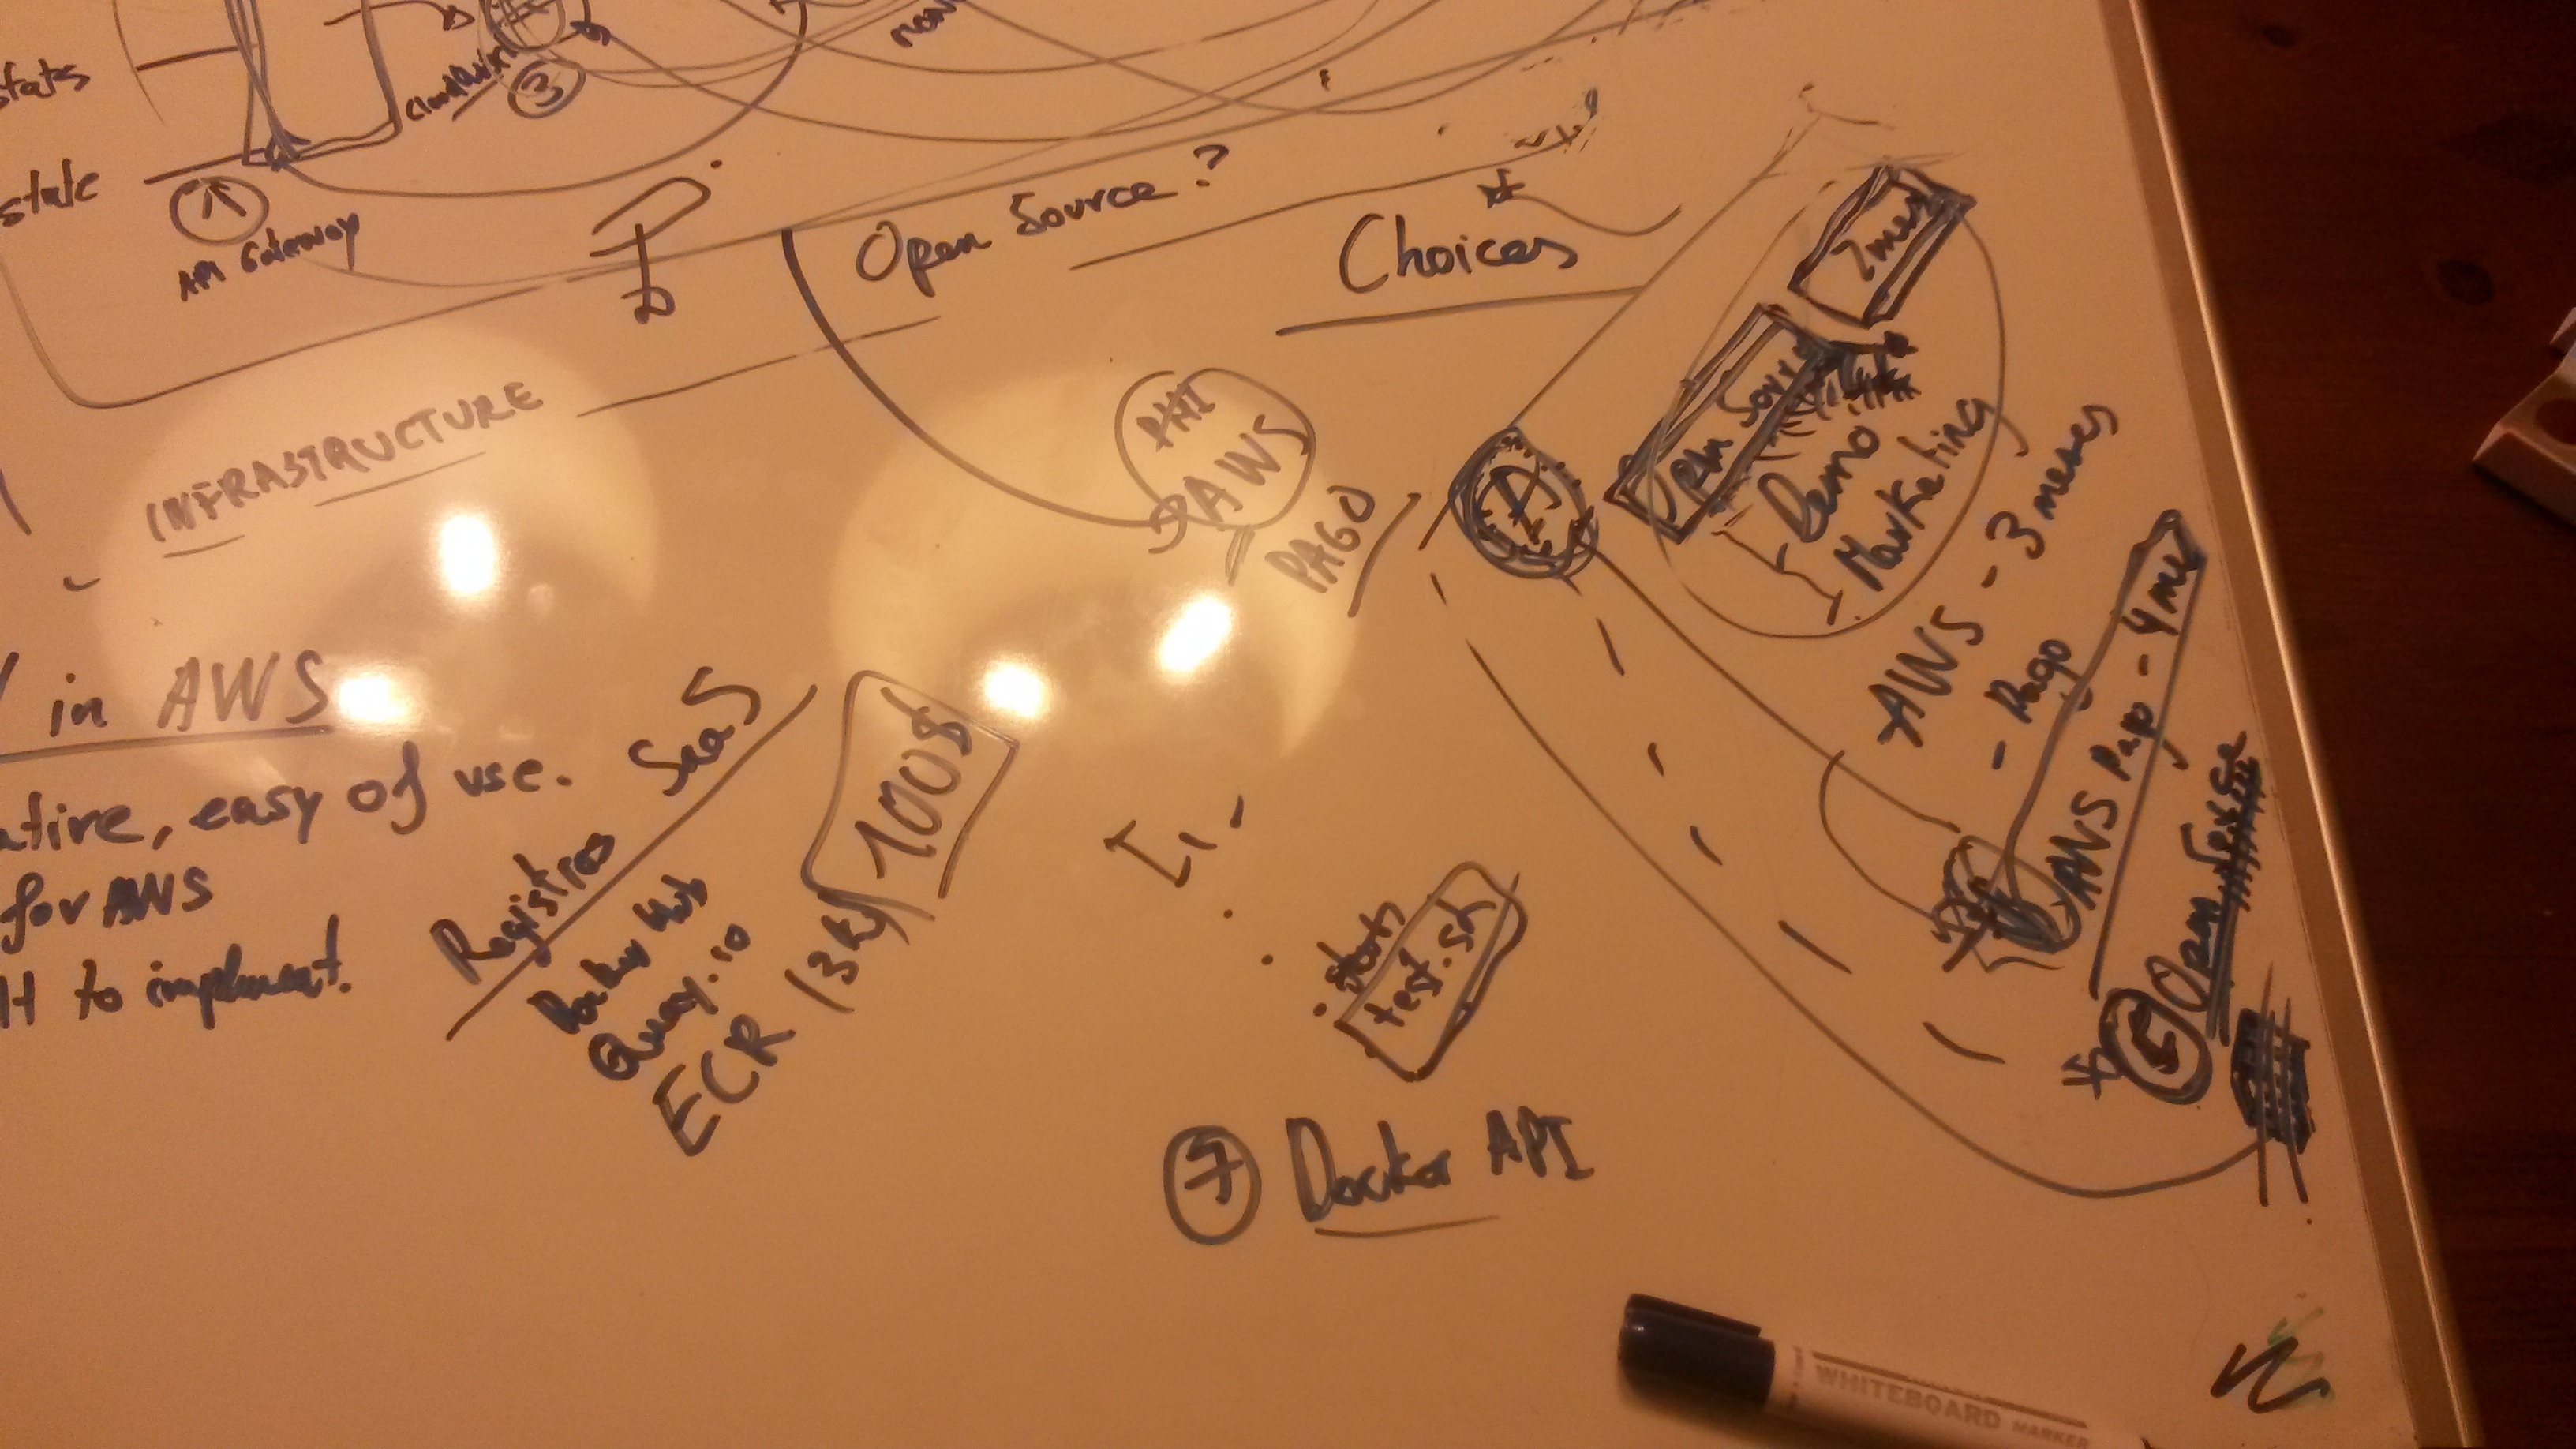 stats
state
API Gateway
3
Open Source?
Choices
INFRASTRUCTURE
AWS
PAGO
2 mes
Open Sour
- Demo
- Marketing
AWS - 3 meses
- Pago
AWS Pago - 4 me
Open Sou
in AWS
easy of use.
for AWS
to implement.
Registries SaaS
Docker Hub
Quay.io
ECR
100$
start
test.sh
7 Docker API
WHITEBOARD MARKER